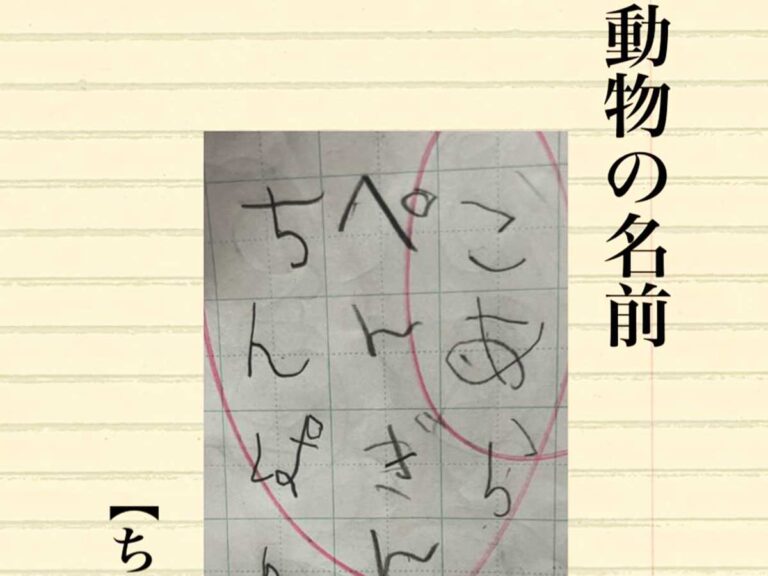 動物の名前
こあら
ぺんぎん
ちんぱ
【ち